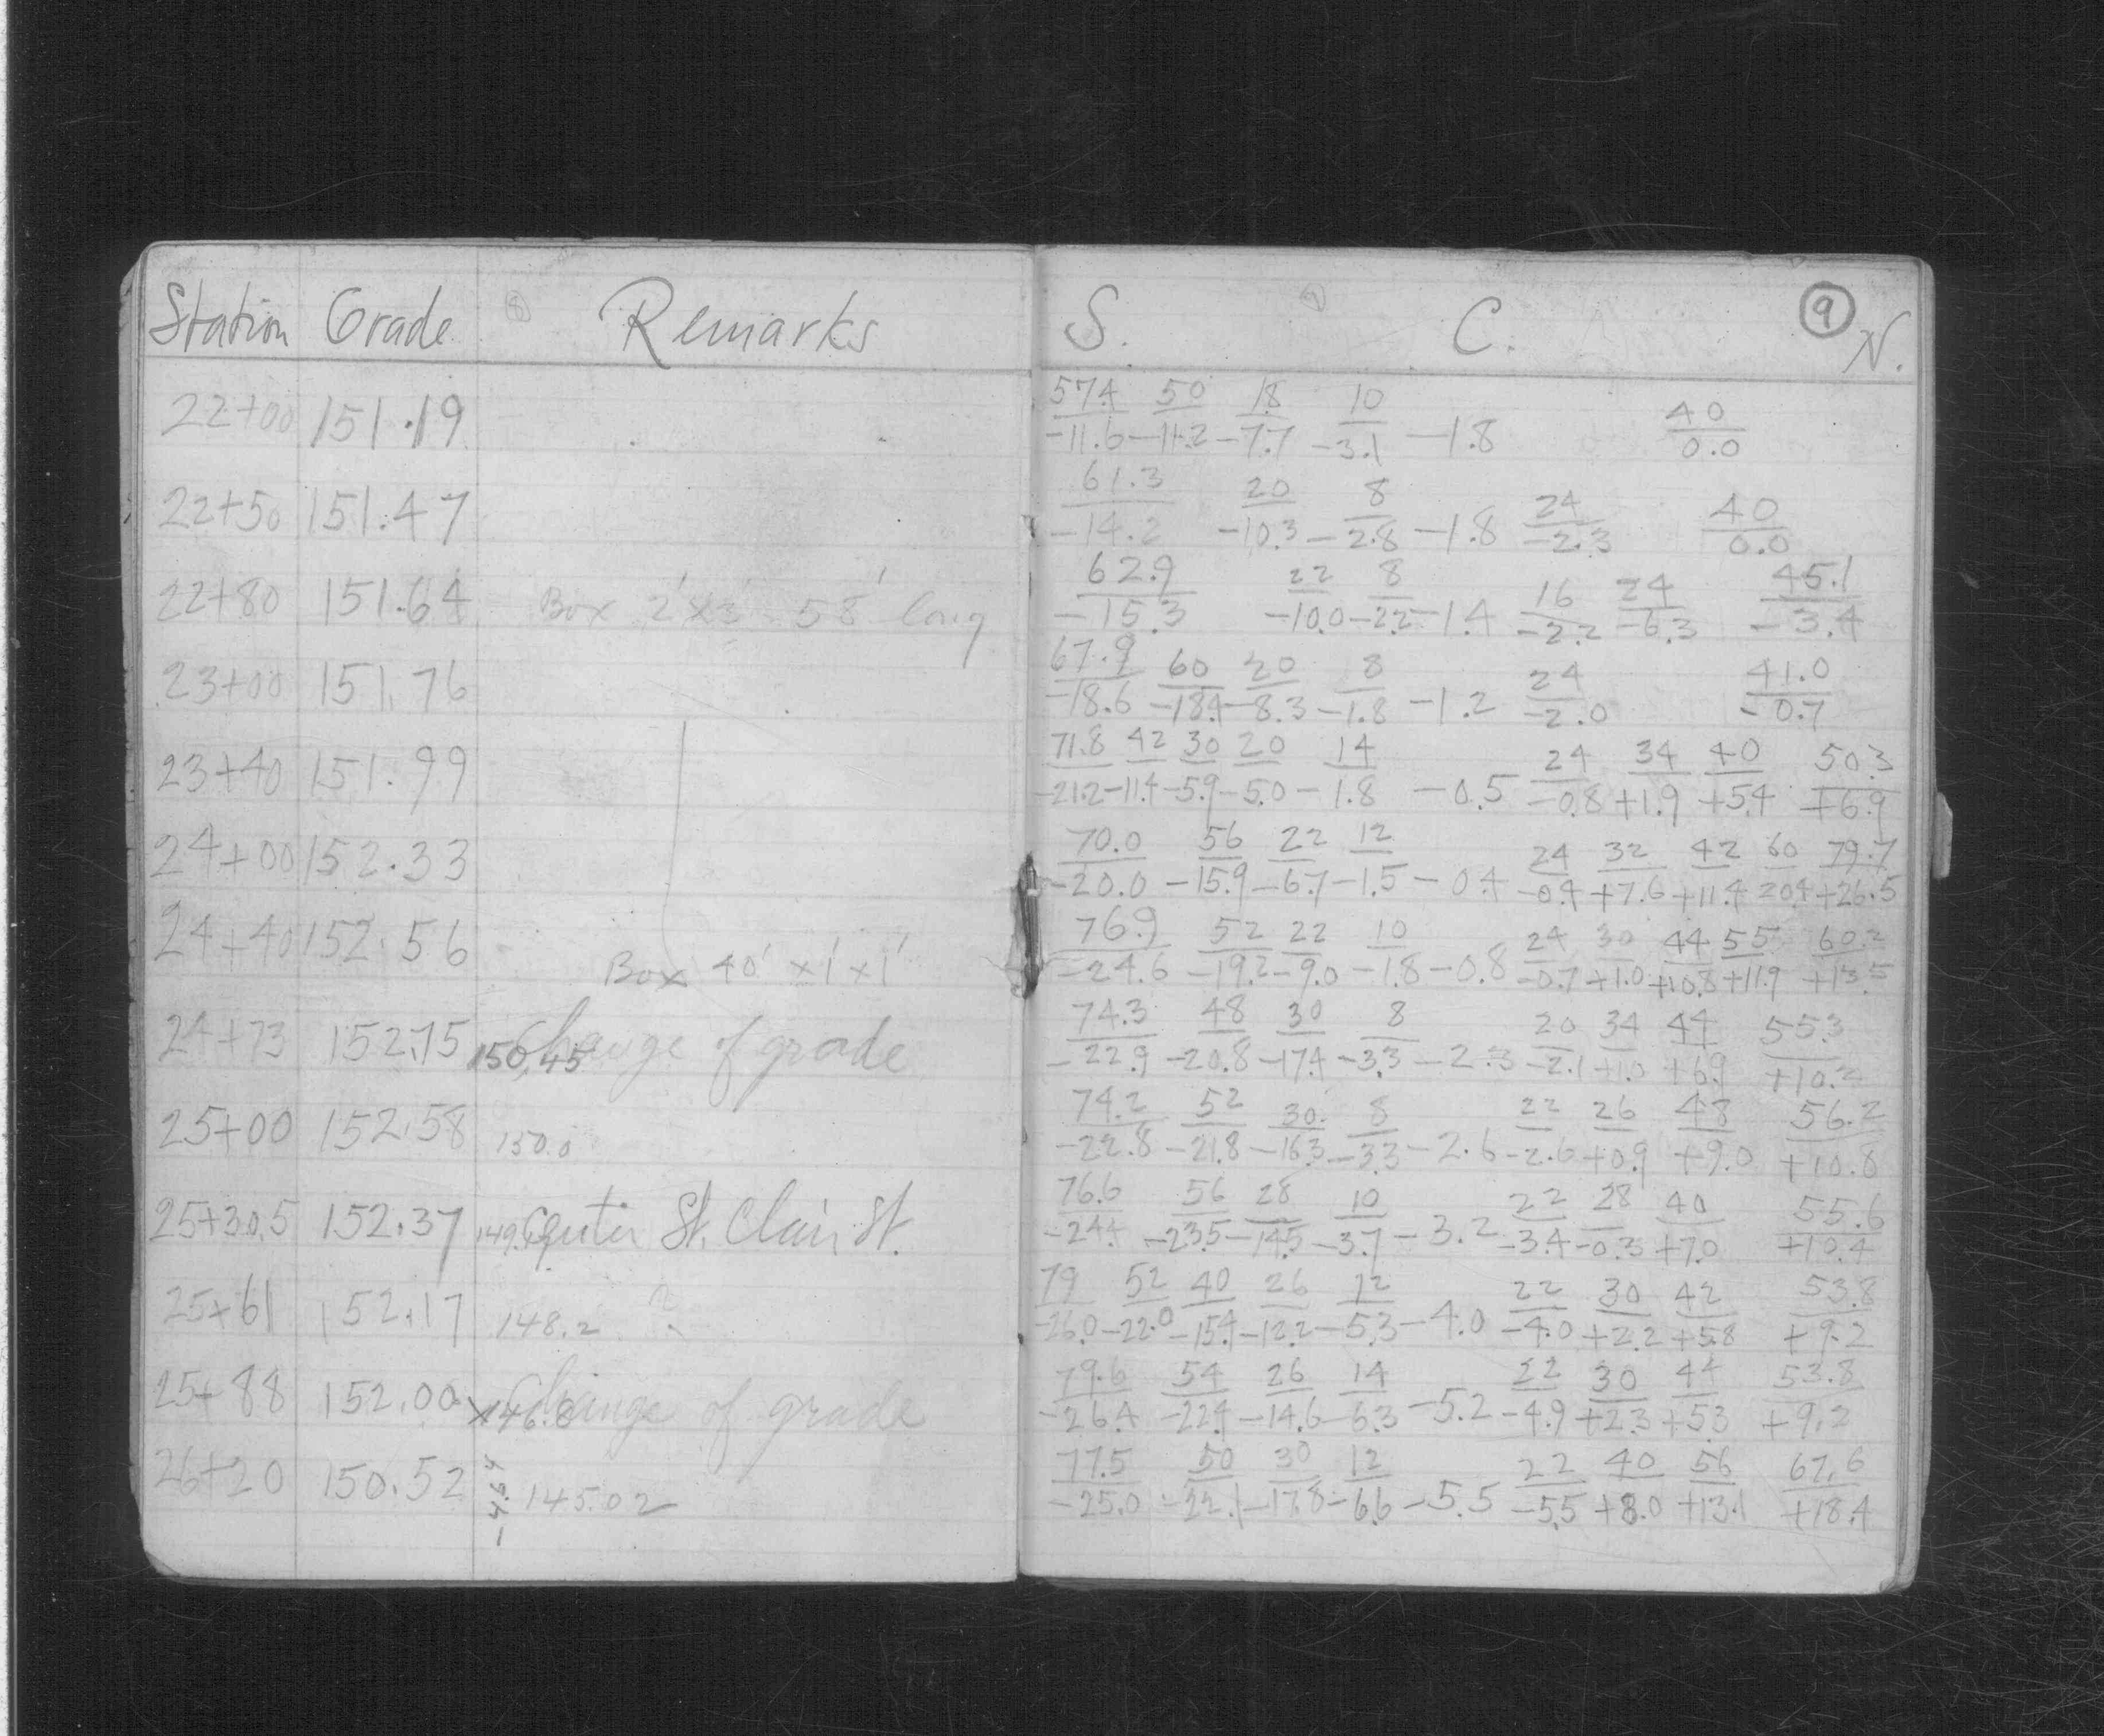 Station Grade Remarks
22+00 151.19
22+50 151.47
22+80 151.64 Box 2'x3' 58' long
23+00 151.76
23+40 151.99
24+00 152.33
24+40 152.56
Box 40' x 1' x 1'
24+73 152.75 150.45 Change of grade
25+00 152.58 150.0
25+30.5 152.37 Center St. Clair St.
25+61 152.17 148.2 ?
25+88 152.00 x146.8 Change of grade
26+20 150.52 -4.64 145.02
S. C. 9 N.
57.4 50 18 10 40
-11.6 -11.2 -7.7 -3.1 -1.8 0.0
61.3 20 8 24 40
-14.2 -10.3 -2.8 -1.8 -2.3 0.0
62.9 22 8 16 24 45.1
-15.3 -10.0 -2.2 -1.4 -2.2 -6.3 -3.4
67.9 60 20 8 24 41.0
-18.6 -18.4 -8.3 -1.8 -1.2 -2.0 -0.7
71.8 42 30 20 14 24 34 40 50.3
-21.2 -11.4 -5.9 -5.0 -1.8 -0.5 -0.8 +1.9 +5.4 +6.9
70.0 56 22 12 24 32 42 60 79.7
-20.0 -15.9 -6.7 -1.5 -0.4 -0.4 +7.6 +11.4 20.4 +26.5
76.9 52 22 10 24 30 44 55 60.2
-24.6 -19.2 -9.0 -1.8 -0.8 -0.7 +1.0 +10.8 +11.9 +13.5
74.3 48 30 8 20 34 44 55.3
-22.9 -20.8 -17.4 -3.3 -2.3 -2.1 +1.0 +6.9 +10.2
74.2 52 30 8 22 26 48 56.2
-22.8 -21.8 -16.3 -3.3 -2.6 -2.6 +0.9 +9.0 +10.8
76.6 56 28 10 22 28 40 55.6
-24.4 -23.5 -14.5 -3.7 -3.2 -3.4 -0.3 +7.0 +10.4
79 52 40 26 12 22 30 42 53.8
-26.0 -22.0 -15.4 -12.2 -5.3 -4.0 -4.0 +2.2 +5.8 +9.2
79.6 54 26 14 22 30 44 53.8
-26.4 -22.4 -14.6 -6.3 -5.2 -4.9 +2.3 +5.3 +9.2
77.5 50 30 12 22 40 56 67.6
-25.0 -22.1 -17.8 -6.6 -5.5 -5.5 +8.0 +13.1 +18.4